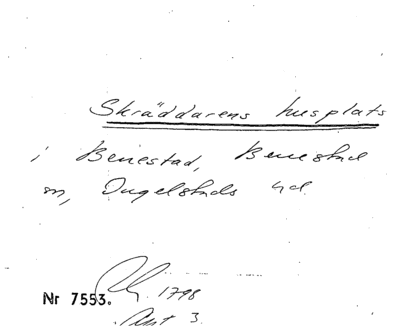 Skräddarens husplats
i Benestad, Benestad
sn, Ingelstads hd.
Nr 7553. 1798
Akt 3.